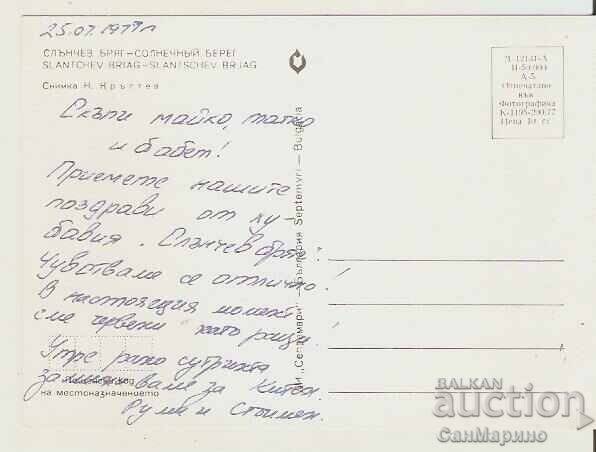 25.07.1977г
СЛЪНЧЕВ БРЯГ–СОЛНЕЧНЫЙ БЕРЕГ
SLANTCHEV BRIAG–SLANTSCHEV BRJAG
Снимка Н. Кръстев
Скъпи майко, татко
и бабет!
Приемете нашите
поздрави от ху-
бавия. Слънчев бряг!
Чувстваме се отлично!
В настоящия момент
сме червени като раци.
Утре рано сутринта
заминаваме за Китен.
Руми и Стоимен.
Пощенски код
на местоназначението
ДИ „Септември" – България Septemvri – Bulgaria
Отпечатано
във
Фотографика
Цена 10 ст.
BALKAN
auction
СанМарино